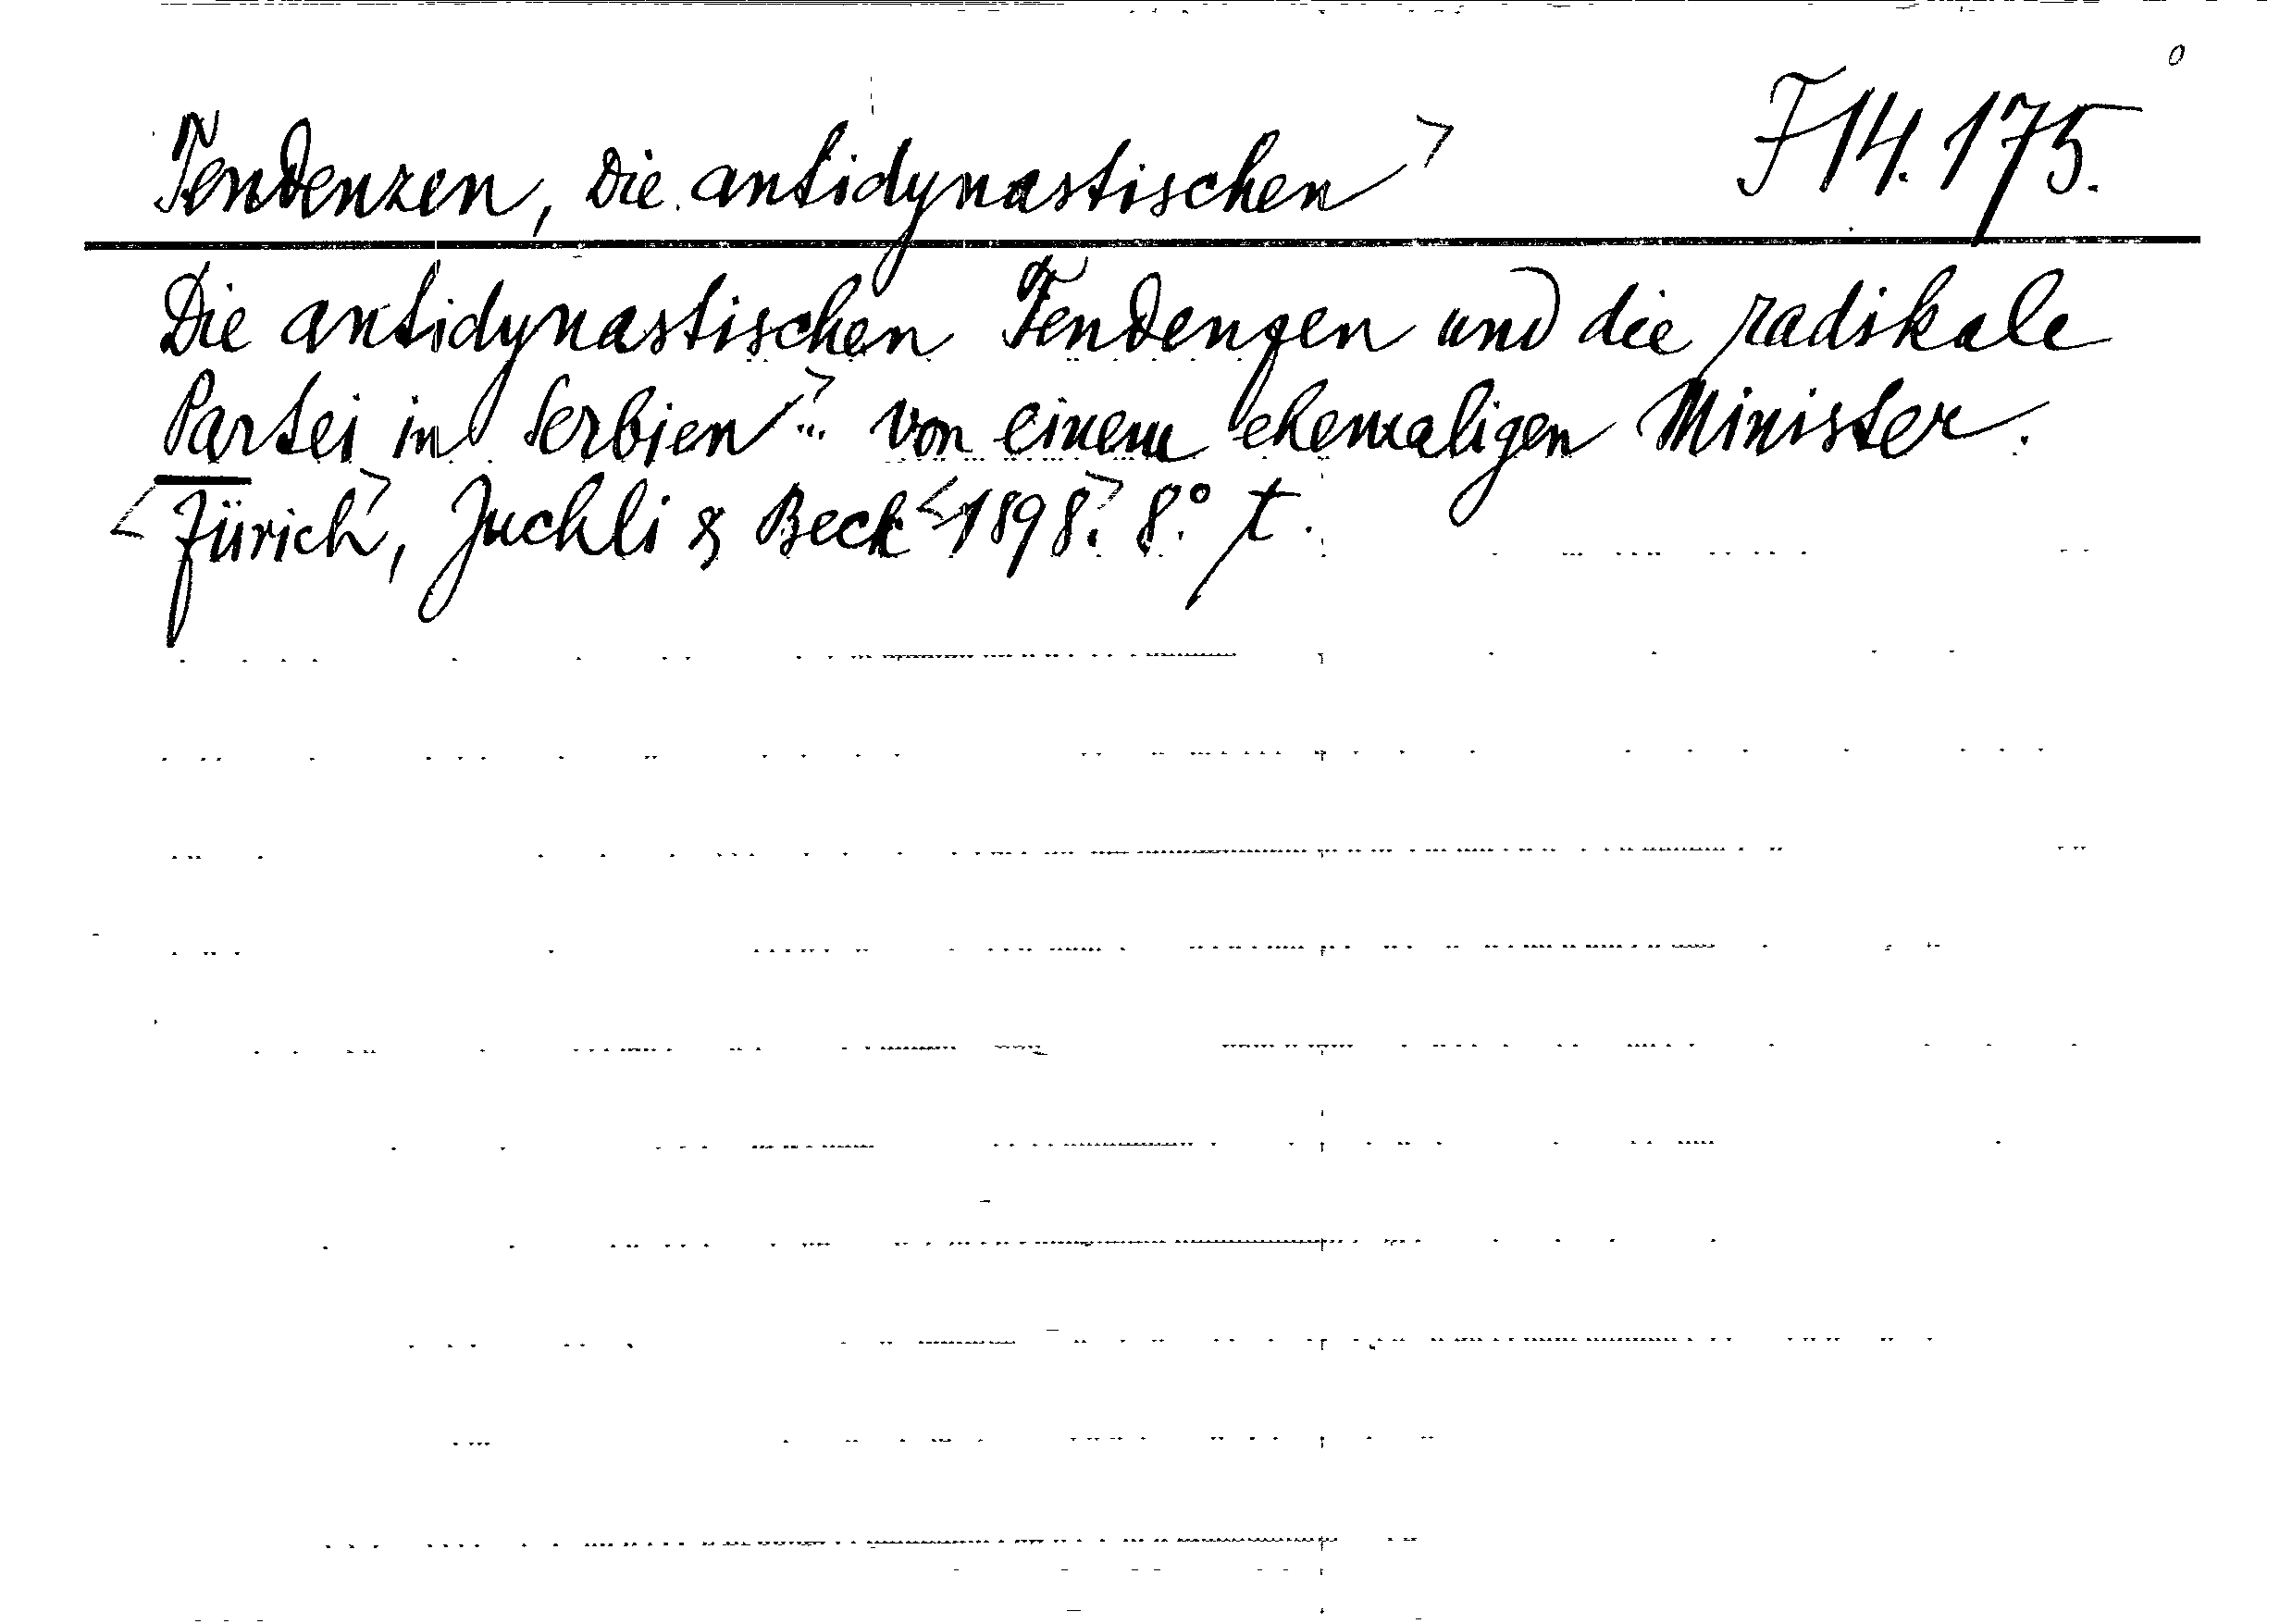 Tendenzen, die antidynastischen> F 14.175.
Die antidynastischen Tendenzen und die radikale
Partei in Serbien>... von einem ehemaligen Minister.
<Zürich>, Juchli & Beck <1898>. 8.° t.